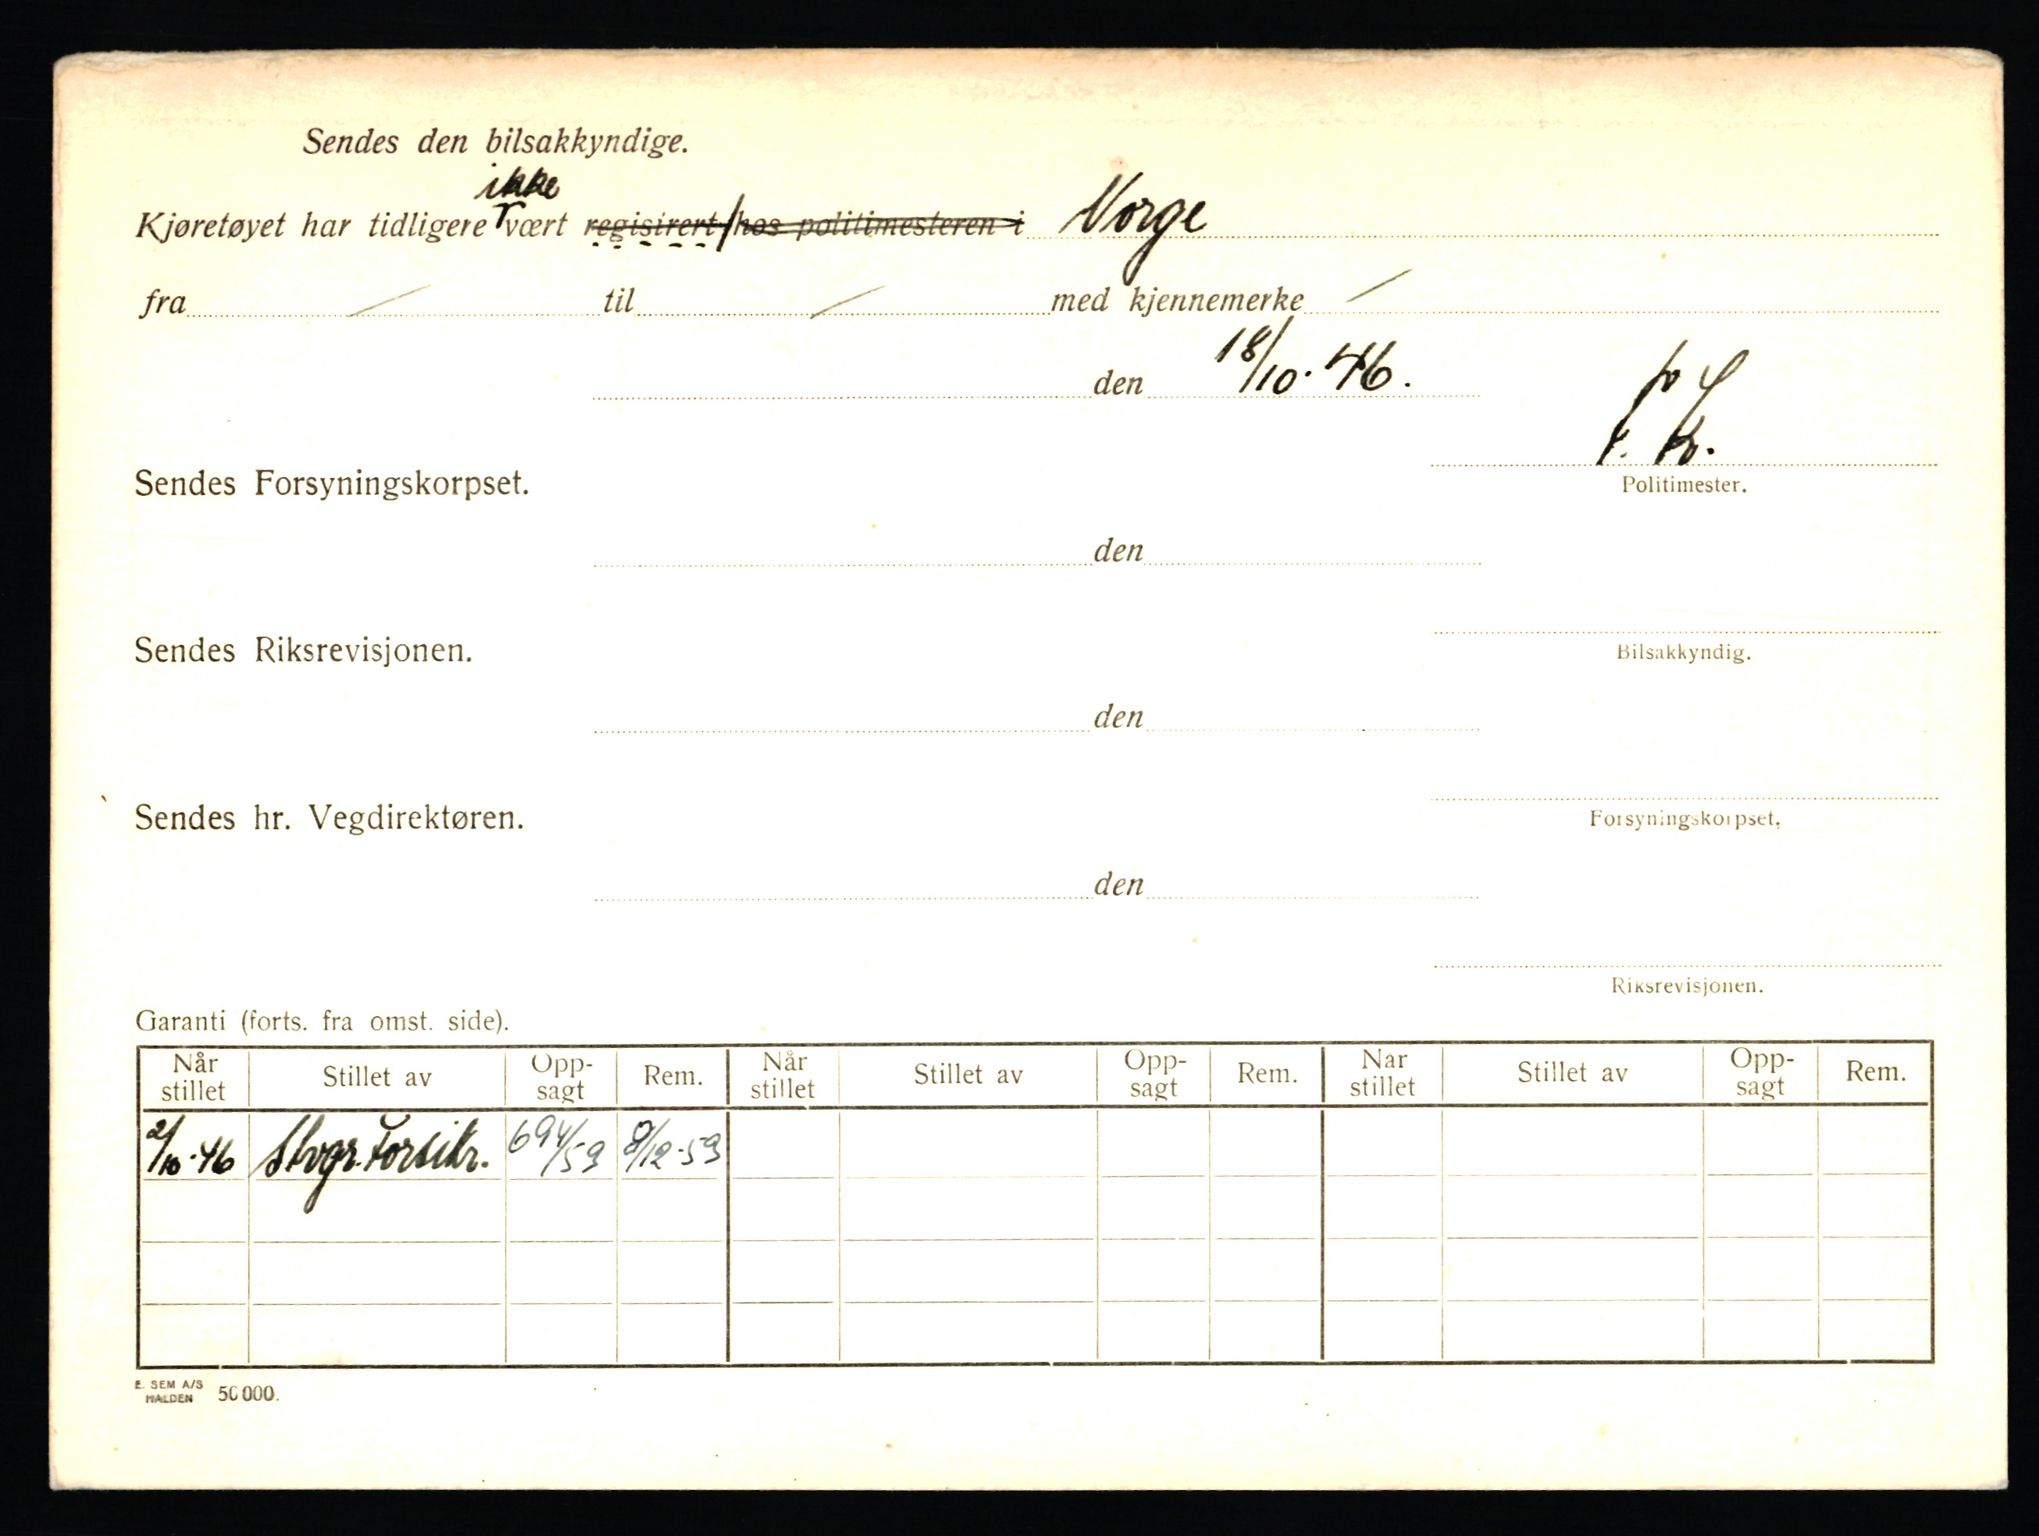 Sendes den bilsakkyndige.
ikke
Kjøretøyet har tidligere vært registrert hos politimesteren i Norge
fra / til / med kjennemerke /
den 18/10. 46.
Sendes Forsyningskorpset.
Politimester.
den
Sendes Riksrevisjonen.
Bilsakkyndig.
den
Sendes hr. Vegdirektøren.
Forsyningskorpset.
den
Riksrevisjonen.
Garanti (forts. fra omst. side).
Når stillet Stillet av Opp-sagt Rem. Når stillet Stillet av Opp-sagt Rem. Når stillet Stillet av Opp-sagt Rem.
2/10.46 Stvgr. Forsikr. 694/59 8/12-59
E. SEM A/S
HALDEN 50 000.